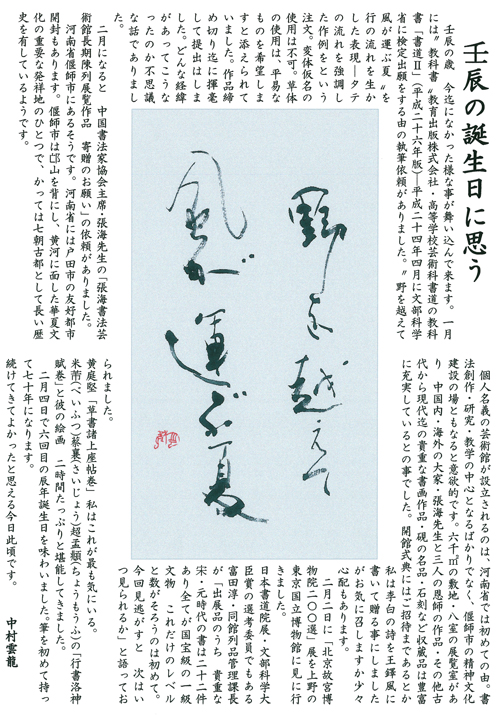 壬辰の誕生日に思う
壬辰の歳　今迄になかった様な事が舞い込んで来ます。一月
には〝教科書〟教育出版株式会社・高等学校芸術科書道の教科
書「書道Ⅱ」（平成二十六年版）―平成二十四年四月に文部科学
省に検定出願をする由の執筆依頼がありました。〝野を越えて
風が運ぶ夏〟を
行の流れを生か
した表現―タテ
の流れを強調し
た作例をという
注文。変体仮名の
使用は不可。草体
の使用は、平易な
ものを希望しま
すと添えられて
いました。作品締
め切りに揮毫
して提出はしまし
した。どんな経緯
があってこうな
ったのか不思議
な話でありまし
た。
二月になると　中国書法家協会主席・張海先生の「張海書法芸
術館長期陳列展覧作品　寄贈のお願い」の依頼がありました。
河南省偃師市にあるそうです。河南省には戸田市の友好都市
開封もあります。偃師市は邙山を背にし、黄河に面した華夏文
化の重要な発祥地のひとつで、かつては七朝古都として長い歴
史を有しているようです。
野を越えて
風が運ぶ夏
個人名義の芸術館が設立されるのは、河南省では初めての由。書
法創作・研究・教学の中心となるばかりでなく、偃師市の精神文化
建設の場ともなると意欲的です。六千㎡の敷地・八室の展覧室があ
り　中国内・海外の大家・張海先生と三人の恩師の作品・その他古
代から現代迄の貴重な書画作品・硯の名品・石刻など収蔵品は豊富
に充実しているとの事でした。開館式典にはご招待まであるとか
私は李白の詩を王鐸風に
書いて贈る事にしました
がお気に召しますか少々
心配もあります。
二月二日に「北京故宮博
物院二〇〇選」展を上野の
東京国立博物館に見に行
きました。
日本書道院展・文部科学大
臣賞の選考委員でもある
富田淳・同館列品管理課長
が「出展品のうち　貴重な
宋・元時代の書は二十二件
あり全てが国宝級の一級
文物　これだけのレベル
と数がそろうのは初めて。
今回見逃がすと　次はい
つ見られるか」と語ってお
られました。
黄庭堅「草書諸上座帖巻」私はこれが最も気にいる。
米芾（べいふつ）蔡襄（さいじょう）趙孟頫（ちょうもうふ）の「行書洛神
賦巻」と彼の絵画　二時間たっぷりと堪能してきました。
二月四日で六回目の辰年誕生日を味わいました。筆を初めて持っ
て七十年になります。
続けてきてよかったと思える今日此頃です。
中村雲龍